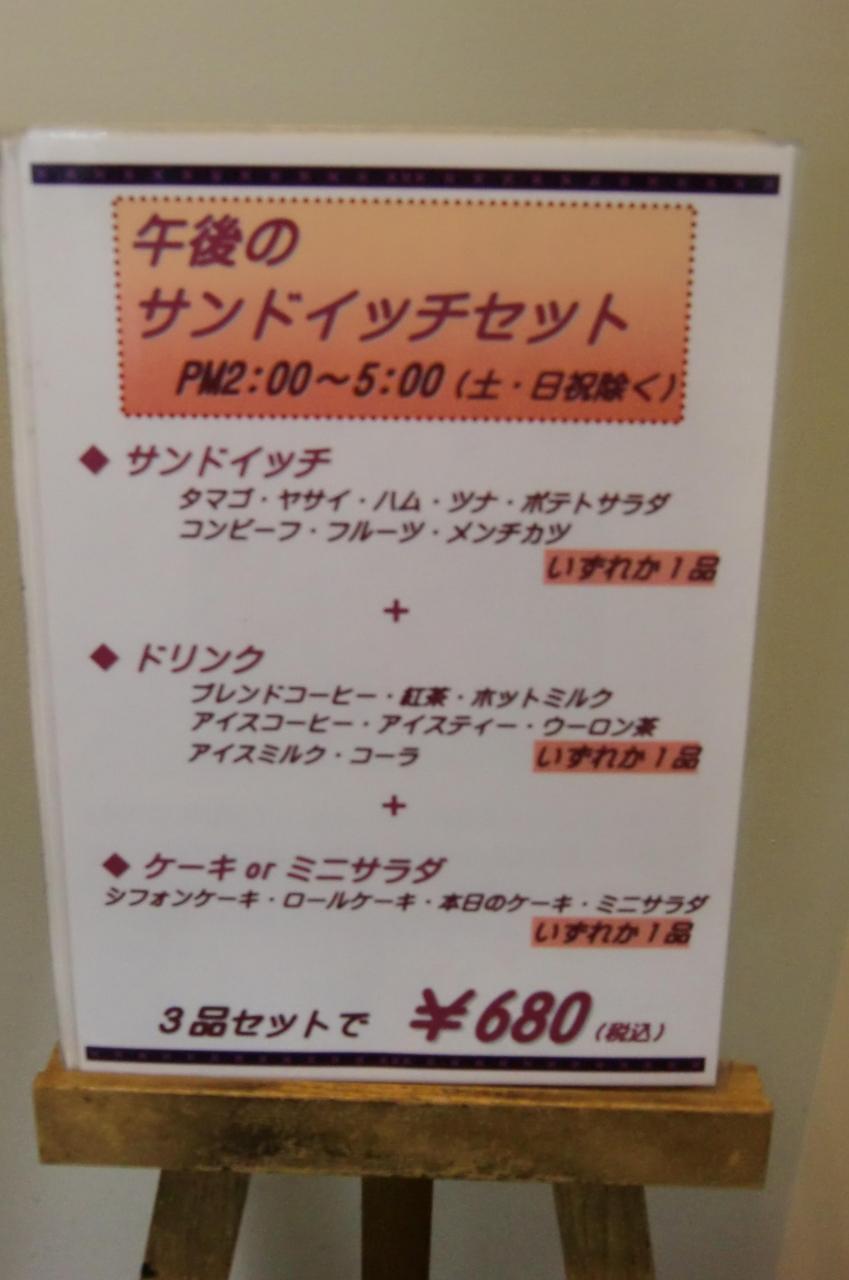 午後の
サンドイッチセット
PM2:00～5:00（土・日祝除く）
◆ サンドイッチ
タマゴ・ヤサイ・ハム・ツナ・ポテトサラダ
コンビーフ・フルーツ・メンチカツ
いずれか１品
+
◆ ドリンク
ブレンドコーヒー・紅茶・ホットミルク
アイスコーヒー・アイスティー・ウーロン茶
アイスミルク・コーラ いずれか１品
+
◆ ケーキ or ミニサラダ
シフォンケーキ・ロールケーキ・本日のケーキ・ミニサラダ
いずれか１品
３品セットで ￥680（税込）